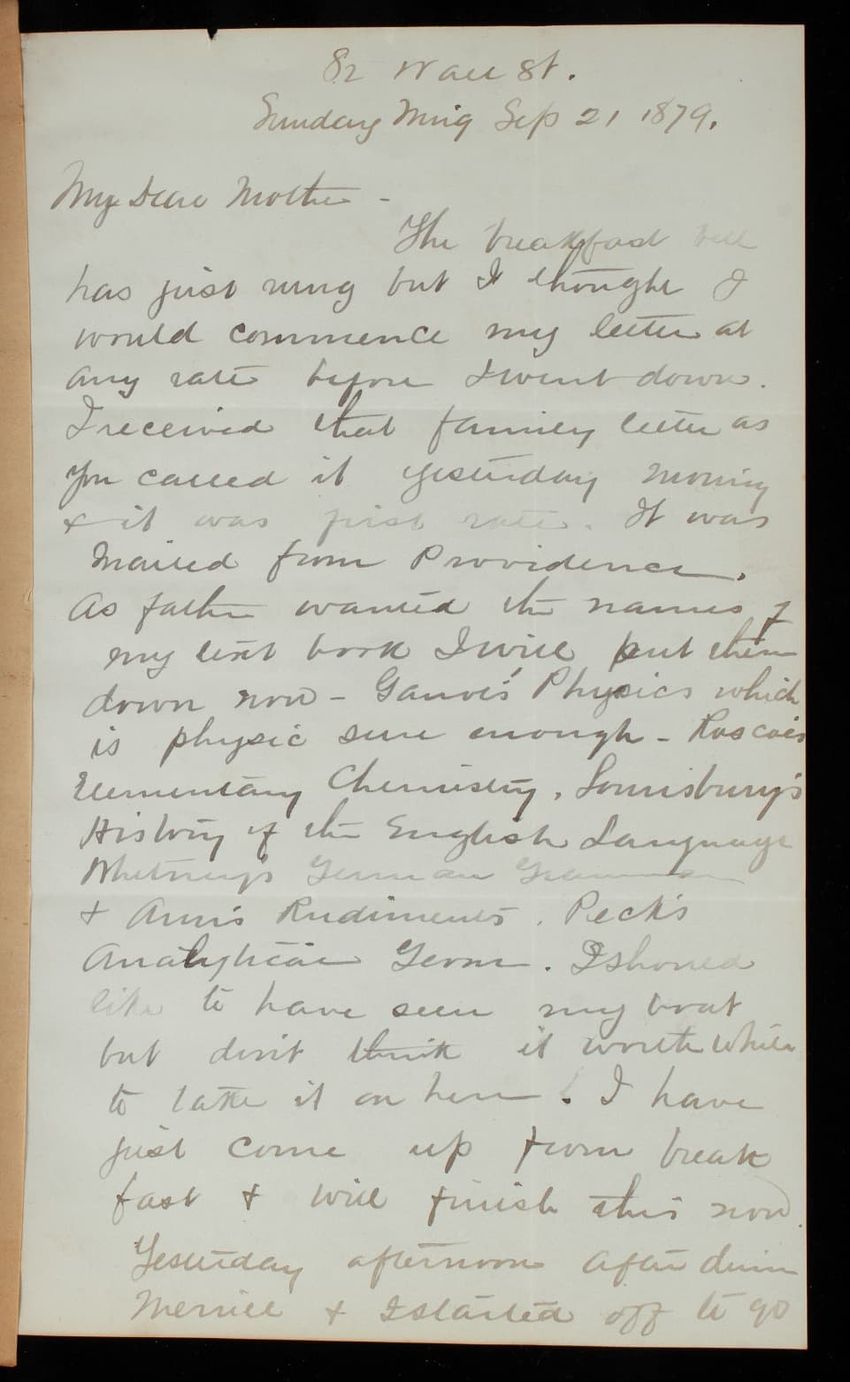 82 Wall St.
Sunday Mng Sep 21 1879.
My Dear Mother -
The breakfast bell
has just rung but I thought I
would commence my letter at
any rate before I went down.
I received that family letter as
you called it yesterday morning
& it was first rate. It was
mailed from Providence.
As father wanted the names of
my text book I will put them
down now - Ganot's Physics which
is physic sure enough - Roscoe's
Elementary Chemistry, Lounsbury's
History of the English Language
Whitney's German Grammar
& Ann's Rudiments. Peck's
Analytical Geom. I should
like to have seen my boat
but don't think it worth while
to take it on here. I have
just come up from break
fast & will finish this now.
Yesterday afternoon after dinn
Merrill & I started off to go